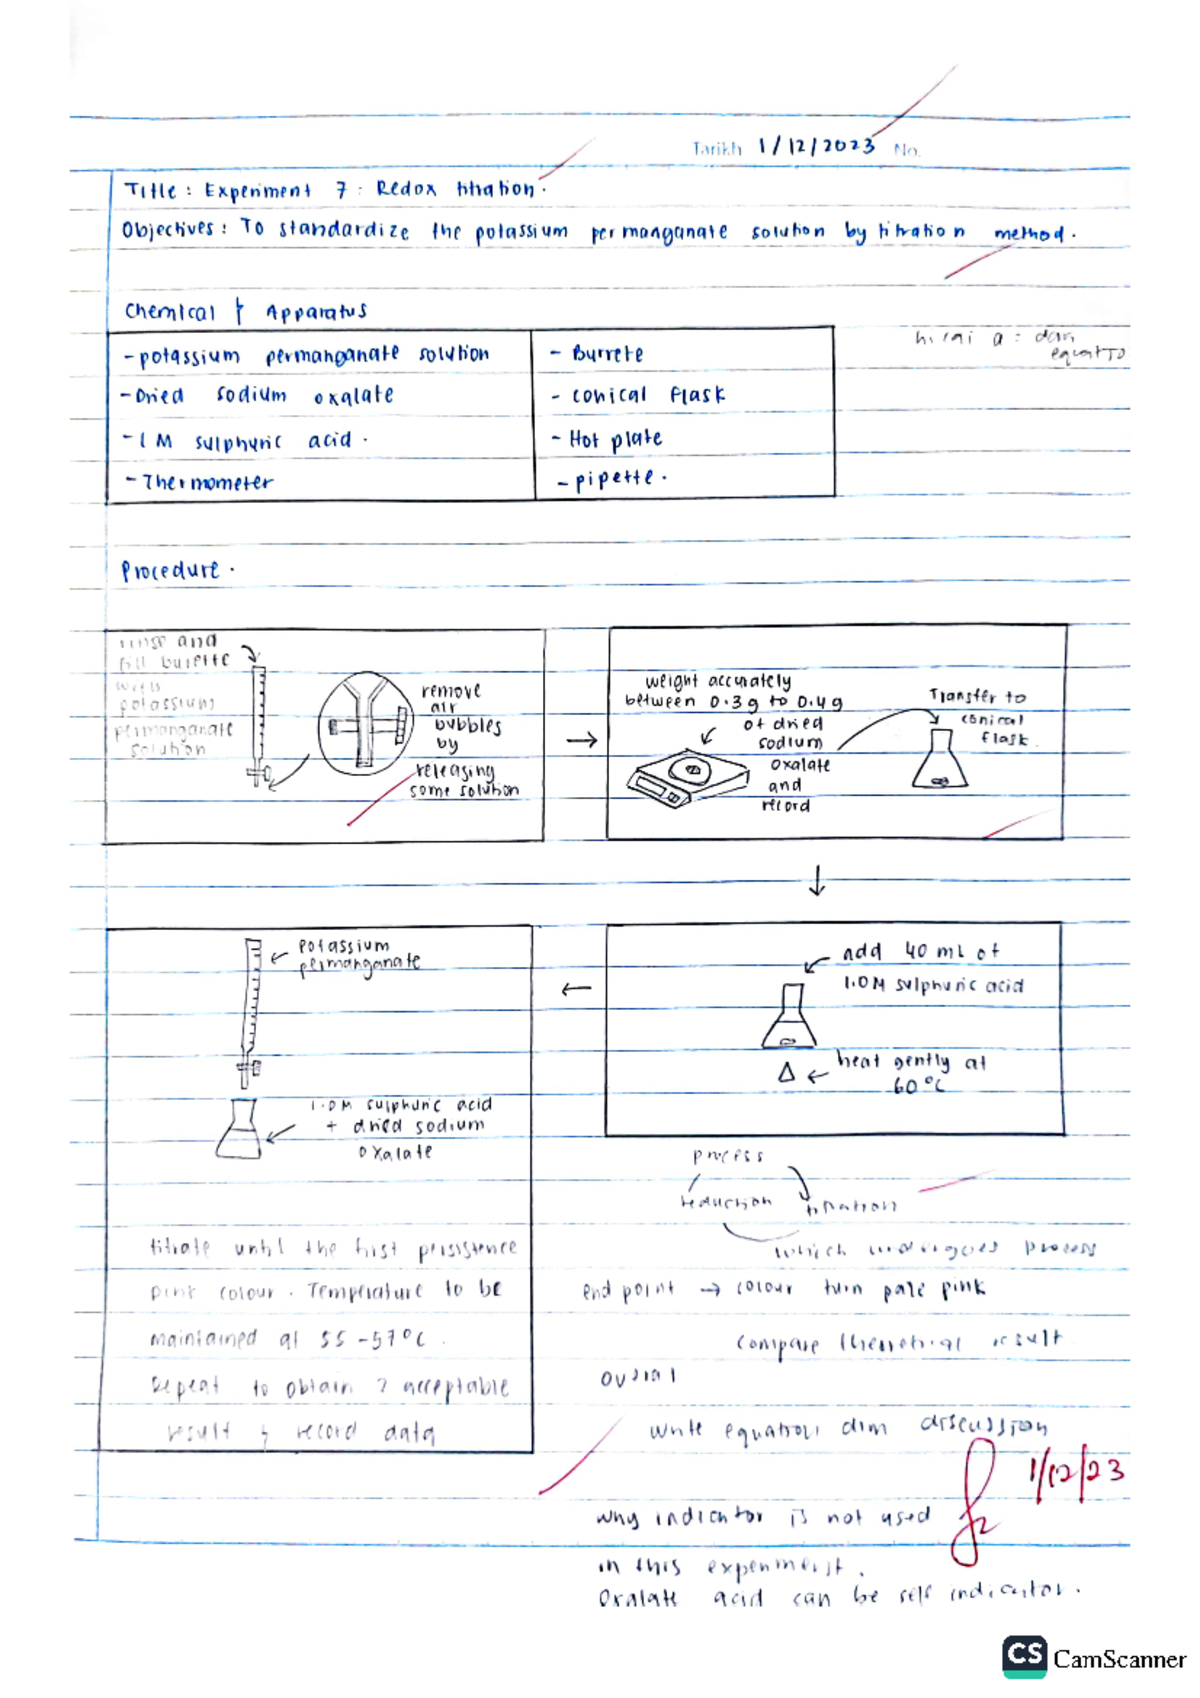 Tarikh 1/12/2023 No.
Title : Experiment 7 : Redox titration.
Objectives : To standardize the potassium permanganate solution by titration method.
Chemical & Apparatus
- potassium permanganate solution
- Dried sodium oxalate
- 1 M sulphuric acid.
- Thermometer
- Burrete
- conical flask
- Hot plate
- pipette.
equat
Procedure.
rinse and
fill burette
with
potassium
permanganate
solution
remove
air
bubbles
by
releasing
some solution
weight accurately
between 0.3g to 0.4g
of dried
sodium
oxalate
and
record
Transfer to
conical
flask.
add 40 mL of
1.0M sulphuric acid
heat gently at
60°C
potassium
permanganate
1.0M sulphuric acid
+ dried sodium
oxalate
titrate until the first persistence
pink colour. Temperature to be
maintained at 55-57°C.
Repeat to obtain 2 acceptable
result & record data
process
reduction titration
which undergoes process
end point → colour turn pale pink
compare theoretical result
write equation dlm discussion
1/12/23
why indicator is not used
in this experiment.
Oxalate acid can be self indicator.
CS CamScanner